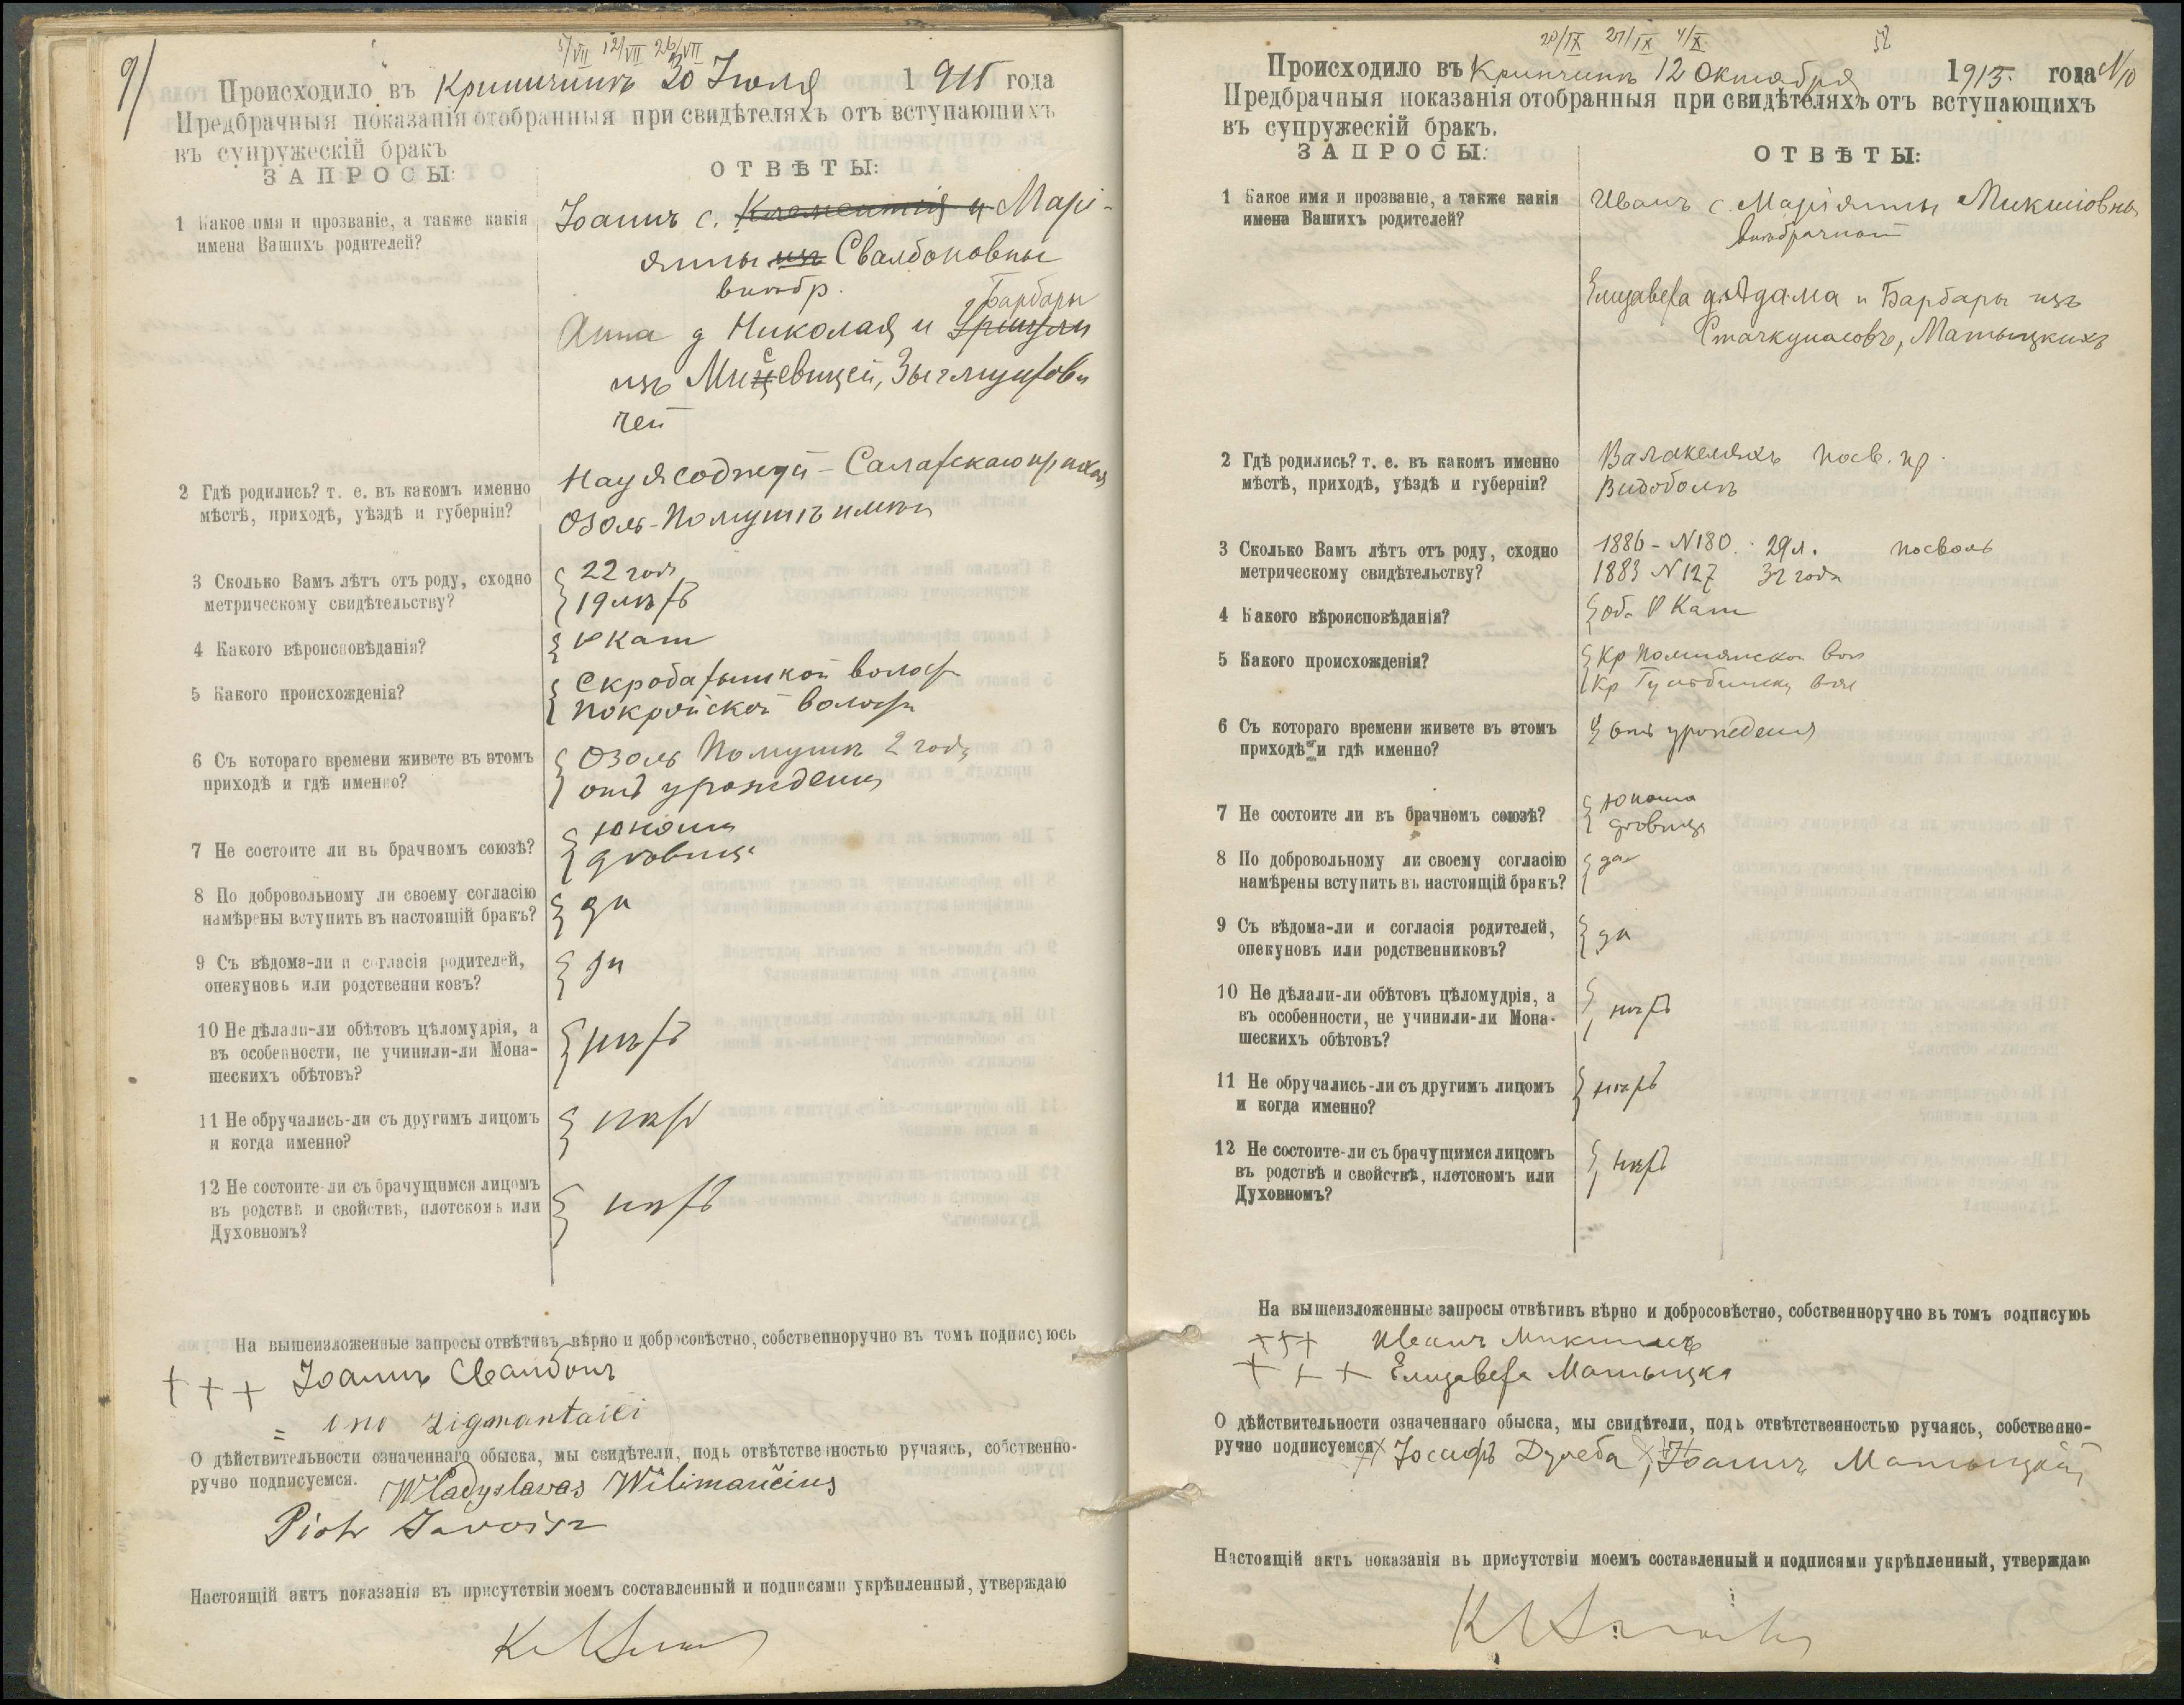 9/
5/VII 12/VII 26/VII
Происходило въ Криничинъ 30 Іюля 1915 года
Предбрачныя показанія отобранныя при свидѣтеляхъ отъ вступающихъ
въ супружескій бракъ
ЗАПРОСЫ:
ОТВѢТЫ:
1 Какое имя и прозваніе, а также какія
имена Вашихъ родителей?
Іоаннъ с. Клементія и Марі-
янны изъ Свалбоновны
внѣбр.
Барбары
Анна д Николая и Уршули
изъ Мицевичей, Зыгмунтови
чей
2 Гдѣ родились? т. е. въ какомъ именно
мѣстѣ, приходѣ, уѣздѣ и губерніи?
Салатскаго прихода
Озоль-Помушъ имѣніи
3 Сколько Вамъ лѣтъ отъ роду, сходно
метрическому свидѣтельству?
22 года
19 лѣтъ
4 Какого вѣроисповѣданія?
Р Кат
5 Какого происхожденія?
Скробатышкой волост
Покройской волости
6 Съ котораго времени живете въ этомъ
приходѣ и гдѣ именно?
Озоль Помушъ 2 года
отъ урожденія
7 Не состоите ли въ брачномъ союзѣ?
юноша
дѣвица
8 По добровольному ли своему согласію
намѣрены вступить въ настоящій бракъ?
да
9 Съ вѣдома-ли и согласія родителей,
опекуновъ или родственниковъ?
да
10 Не дѣлали-ли обѣтовъ цѣломудрія, а
въ особенности, не учинили-ли Мона-
шескихъ обѣтовъ?
нѣтъ
11 Не обручались-ли съ другимъ лицомъ
и когда именно?
нѣтъ
12 Не состоите-ли съ брачущимся лицомъ
въ родствѣ и свойствѣ, плотскомъ или
Духовномъ?
нѣтъ
На вышеизложенные запросы отвѣтивъ вѣрно и добросовѣстно, собственноручно въ томъ подписуюсь
+ + + Іоаннъ Свалбонъ
= ono zigmantaici
О дѣйствительности означеннаго обыска, мы свидѣтели, подъ отвѣтственностью ручаясь, собственно-
ручно подписуемся. Wladyslawas Wilimavičius
Piotr
Настоящій актъ показанія въ присутствіи моемъ составленный и подписями укрѣпленный, утверждаю
20/IX 27/IX 4/X
58
Происходило въ Криничинъ 12 Октября 1915 года N10
Предбрачныя показанія отобранныя при свидѣтеляхъ отъ вступающихъ
въ супружескій бракъ.
ЗАПРОСЫ:
ОТВѢТЫ:
1 Какое имя и прозваніе, а также какія
имена Вашихъ родителей?
Иванъ с. Маріянны Микшовны
внѣбрачной
Елизавета д. Адама и Барбары изъ
Стачкунасовъ, Матыцкихъ
2 Гдѣ родились? т. е. въ какомъ именно
мѣстѣ, приходѣ, уѣздѣ и губерніи?
Валакеляхъ посв. пр.
Видоболь
3 Сколько Вамъ лѣтъ отъ роду, сходно
метрическому свидѣтельству?
1886 - N180. 29 л. посволь
1883 N127 32 года
4 Какого вѣроисповѣданія?
оба Р Кат
5 Какого происхожденія?
Кр вол
Кр Гульбинск вол
6 Съ котораго времени живете въ этомъ
приходѣ и гдѣ именно?
отъ урожденія
7 Не состоите ли въ брачномъ союзѣ?
юноша
дѣвица
8 По добровольному ли своему согласію
намѣрены вступить въ настоящій бракъ?
да
9 Съ вѣдома-ли и согласія родителей,
опекуновъ или родственниковъ?
да
10 Не дѣлали-ли обѣтовъ цѣломудрія, а
въ особенности, не учинили-ли Мона-
шескихъ обѣтовъ?
нѣтъ
11 Не обручались-ли съ другимъ лицомъ
и когда именно?
нѣтъ
12 Не состоите-ли съ брачущимся лицомъ
въ родствѣ и свойствѣ, плотскомъ или
Духовномъ?
нѣтъ
На вышеизложенные запросы отвѣтивъ вѣрно и добросовѣстно, собственноручно въ томъ подписуюь
+++ Иванъ Микшисъ
+ + + Елизавета Матыцка
О дѣйствительности означеннаго обыска, мы свидѣтели, подъ отвѣтственностью ручаясь, собственно-
ручно подписуемся Іосифъ Дулеба, Іоаннъ Матыцкій
Настоящій актъ показанія въ присутствіи моемъ составленный и подписями укрѣпленный, утверждаю